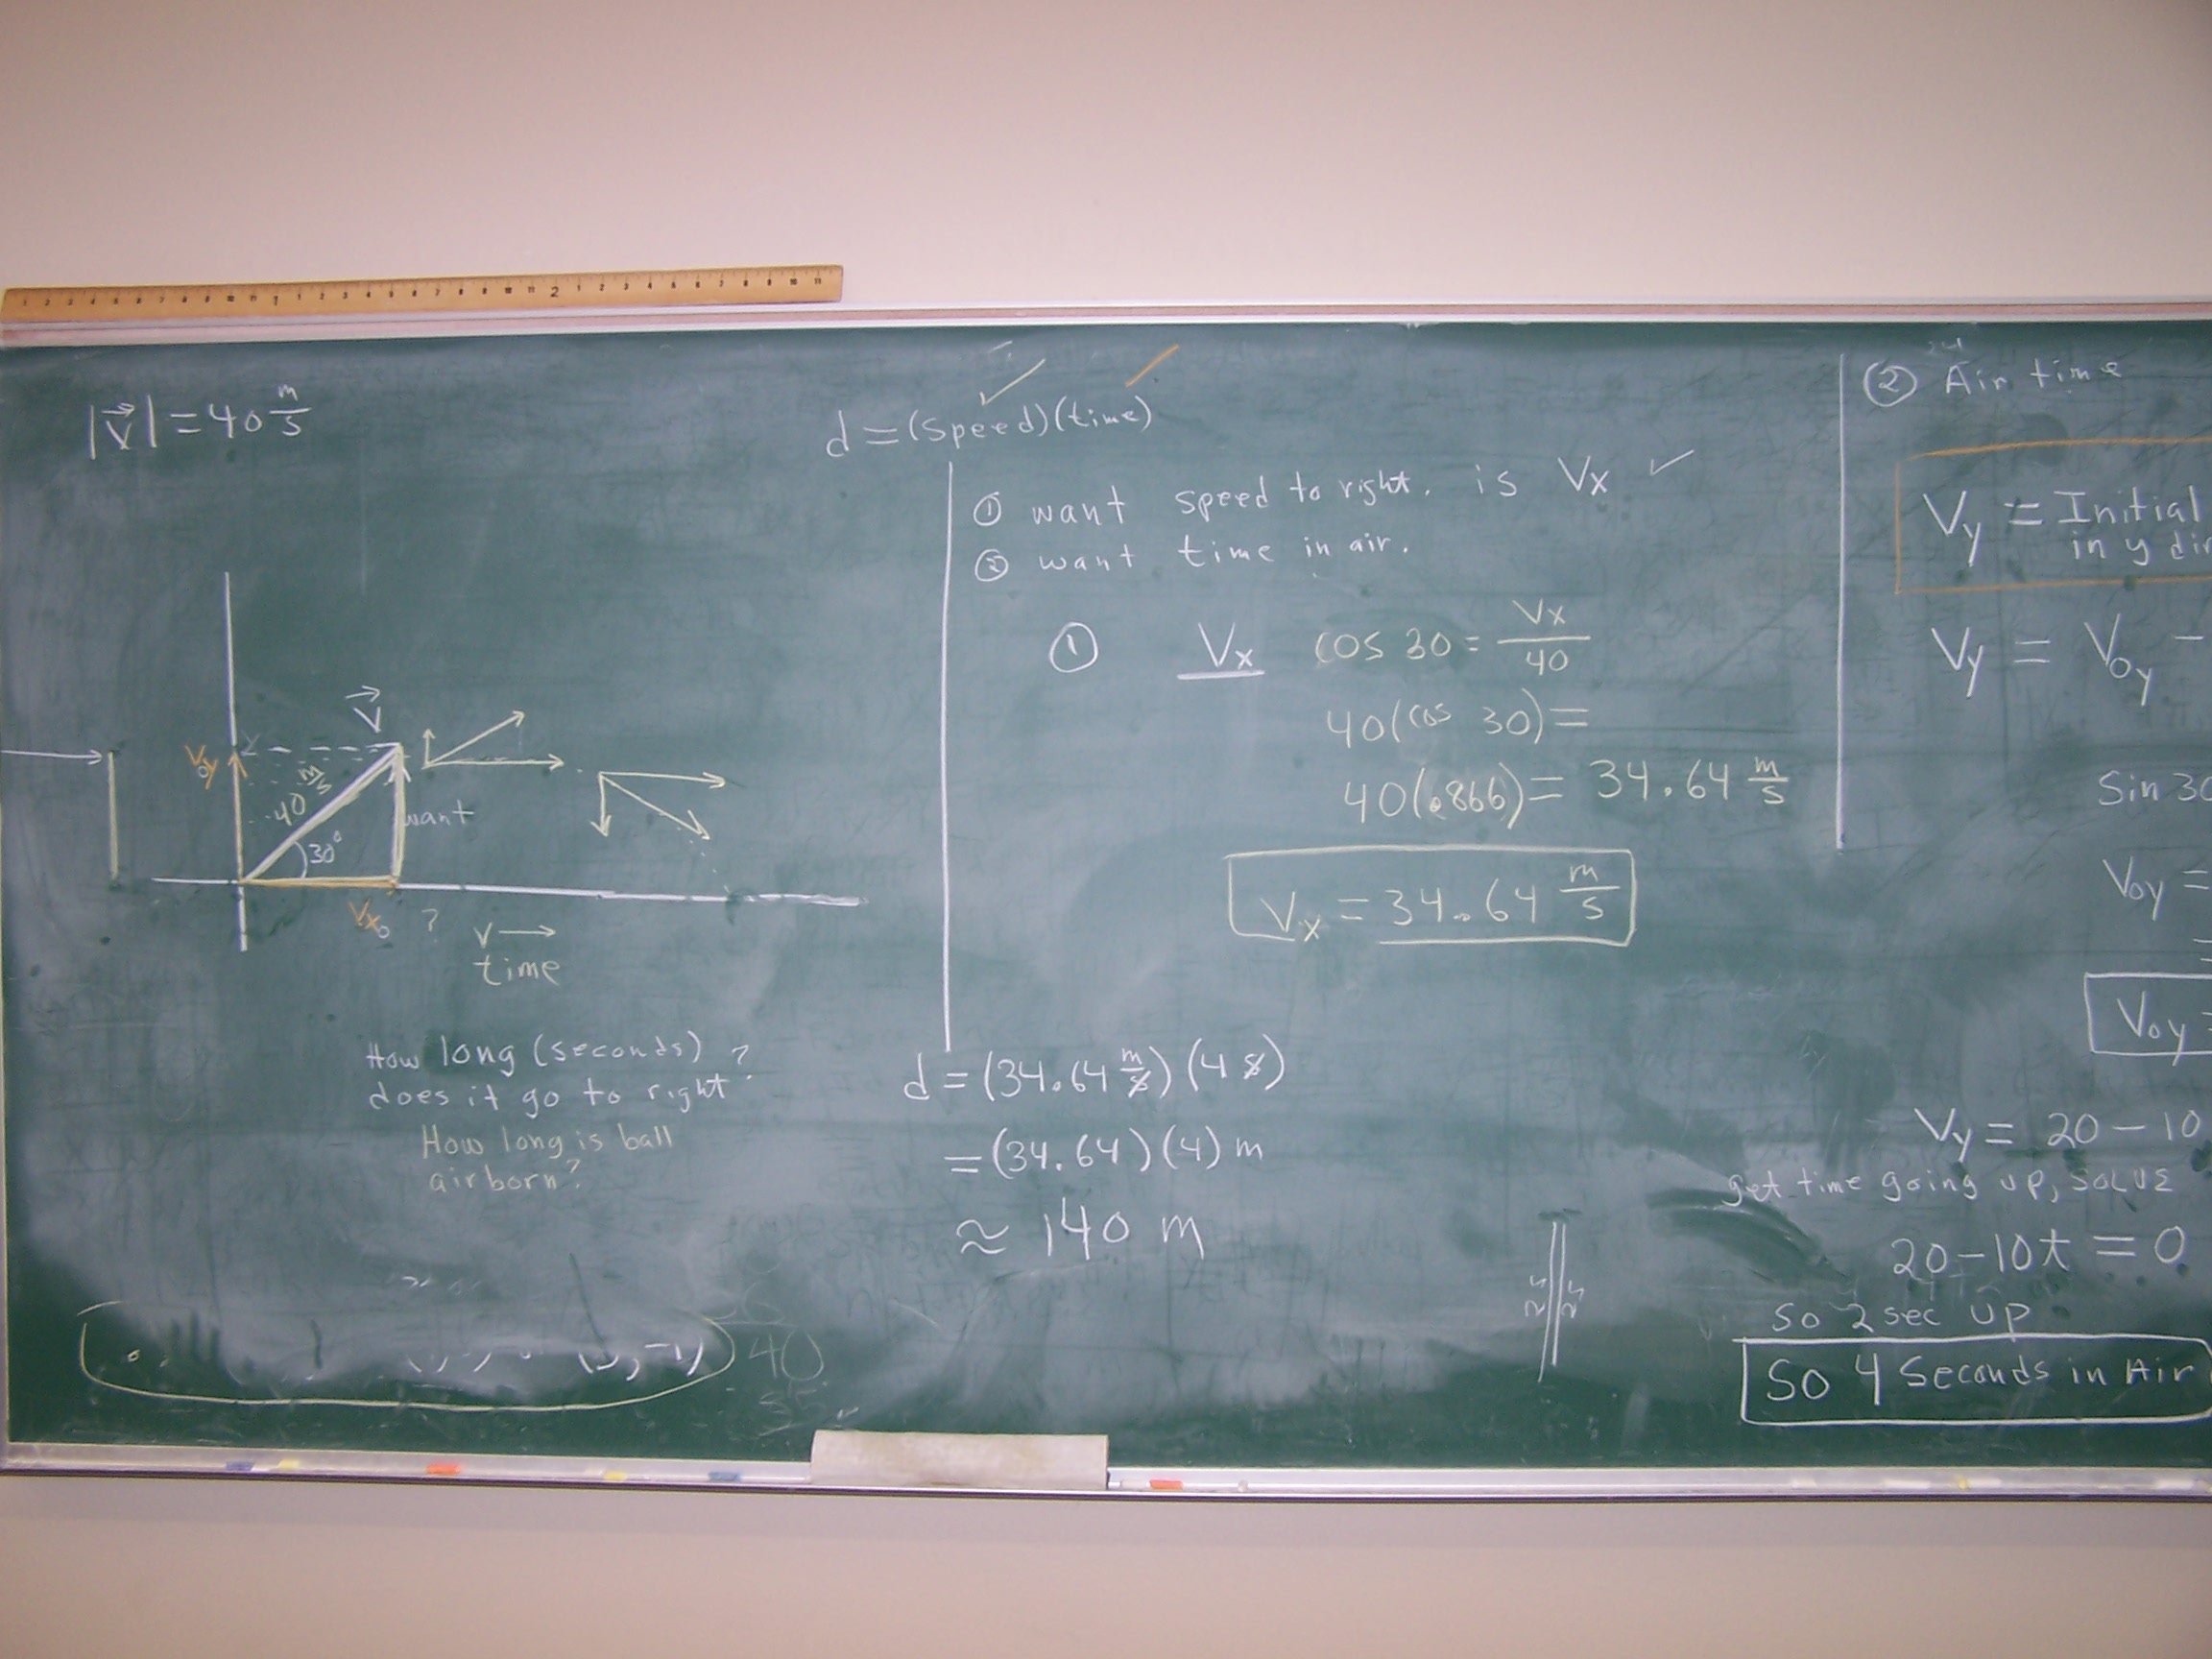 |V| = 40 m/s
V
Voy
40 m/s
30°
want
Vxo ?
V →
time
How long (seconds)
does it go to right?
How long is ball
airborn?
(5,-1)
40
35
d = (speed)(time)
① want speed to right. is Vx ✓
② want time in air.
① Vx cos 30 = Vx/40
40(cos 30) =
40(.866) = 34.64 m/s
Vx = 34.64 m/s
d = (34.64 m/s)(4 s)
= (34.64)(4) m
≈ 140 m
② Air time
Vy = Initial
in y dir
Vy = Voy -
Sin 30
Voy =
=
Voy =
Vy = 20 - 10
get time going up, SOLVE
20 - 10t = 0
So 2 sec up
So 4 Seconds in Air